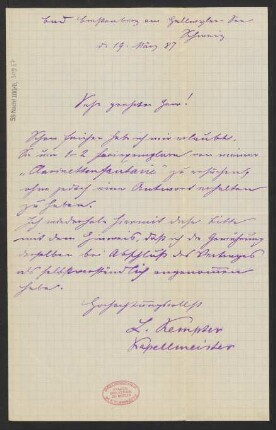 Bad Brestenberg am Hallwyler-See
Schweiz
d. 19. März 87
Sehr geehrter Herr!
Schon früher hab ich mir erlaubt
Sie um 1-2 Freiexemplare von meiner
"Clarinettenfantasie" zu ersuchen,
ohne jedoch eine Antwort erhalten
zu haben.
Ich wiederhole hiermit diese Bitte
mit dem Hinweis, daß ich die Gewährung
derselben bei Abschluß des Vertrages
als selbstverständlich angenommen
habe.
Hochachtungsvollst
L. Kempter
Kapellmeister